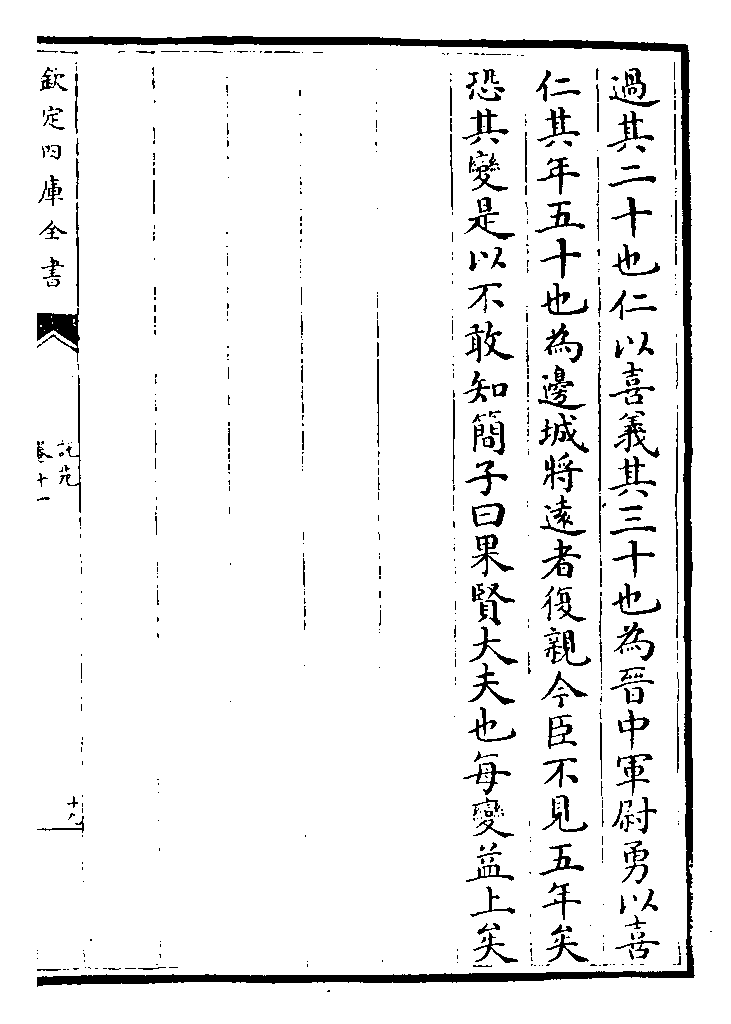 過其二十也仁以喜義其三十也為晉中軍尉勇以喜
仁其年五十也為邊城將遠者復親今臣不見五年矣
恐其變是以不敢知簡子曰果賢大夫也每變益上矣
欽定四庫全書
說苑
卷十一
十九